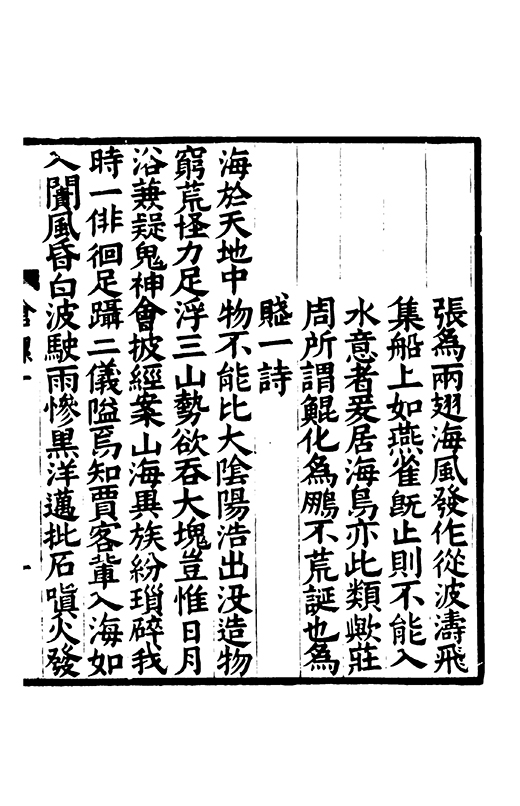 張為兩翅海風發作從波濤飛
集船上如燕雀旣止則不能入
水意者爰居海鳥亦此類歟莊
周所謂鯤化為鵬不荒誕也為
賤一詩
海於天地中物不能比大陰陽浩出没造物
窮荒怪力足浮三山勢欲吞大塊豈惟日月
浴兼疑鬼神會披經案山海異族紛瑣碎我
時一徘徊足躡二儀隘焉知賈客輩入海如
入闠風昏白波駛雨慘黒洋邁批石嗔火發